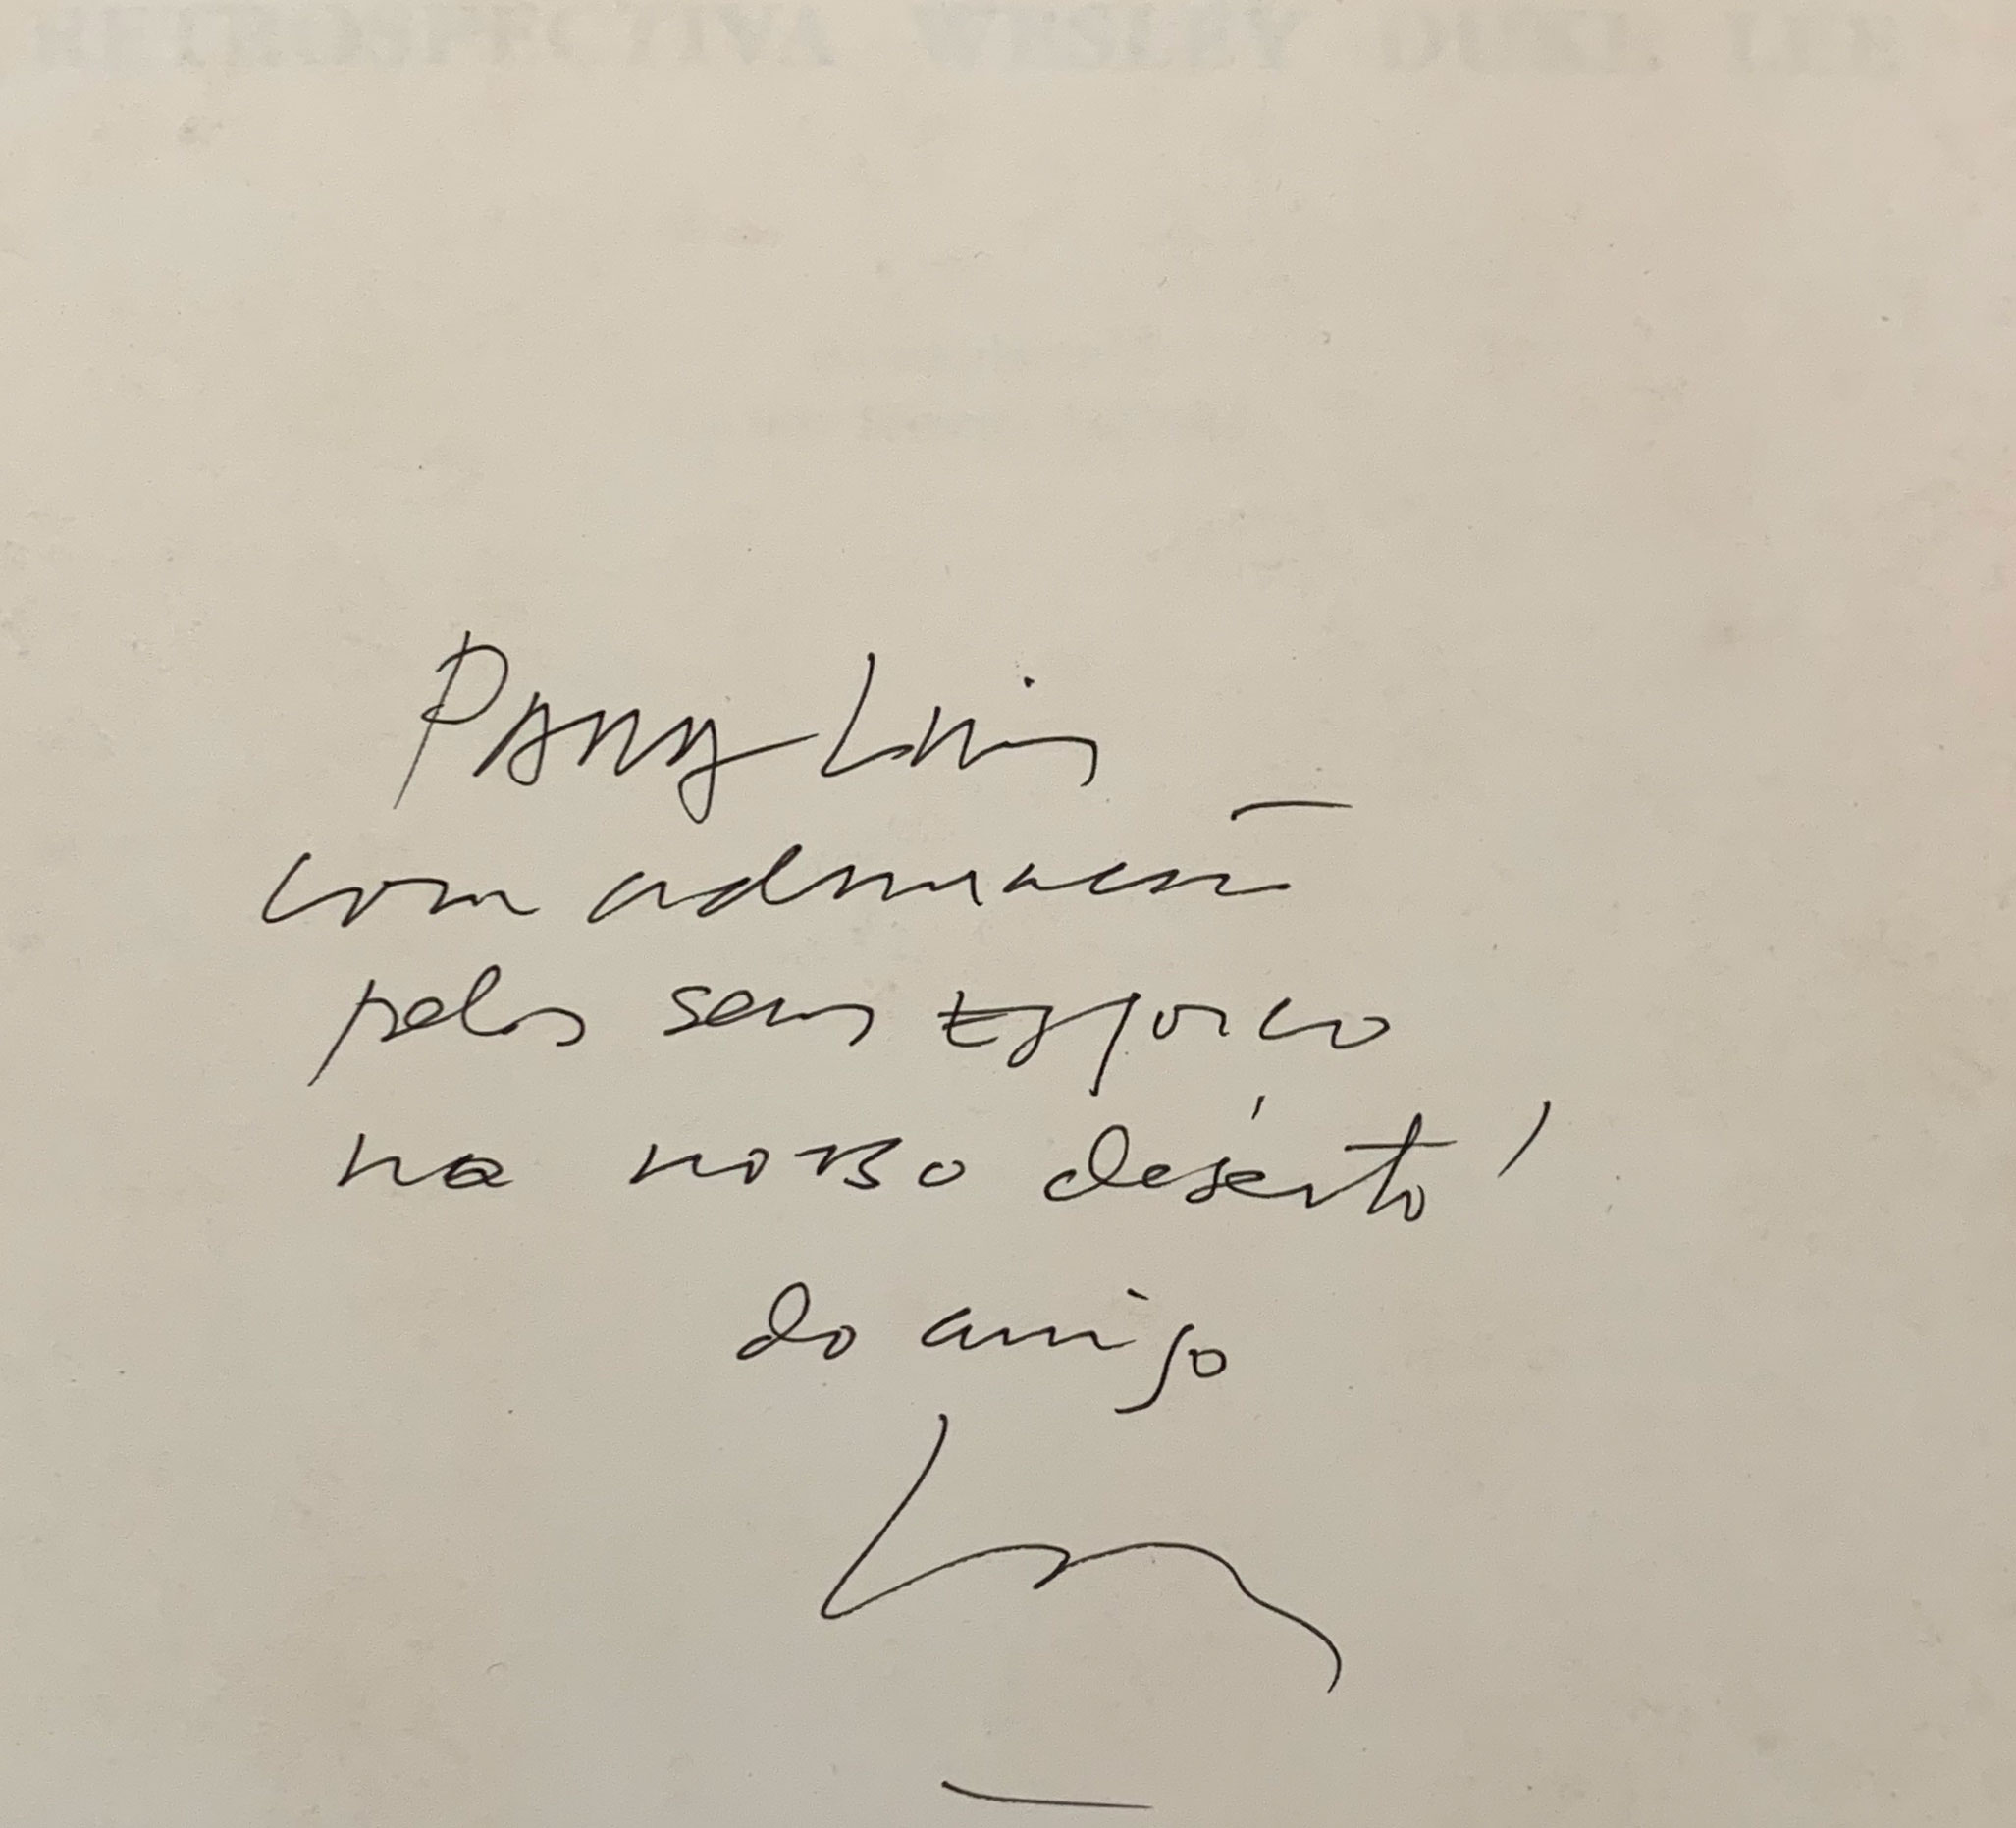 RETROSPECTIVA WESLEY DUKE LEE
Pany Luis
com admiração
pelos seus Esforço
no nosso desérto!
do amigo